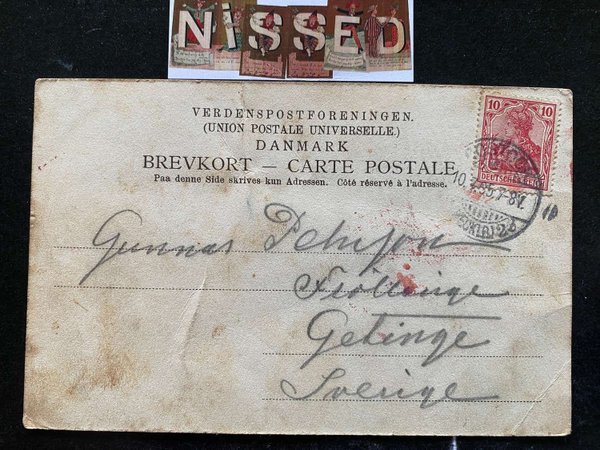 NISSED
VERDENSPOSTFORENINGEN.
(UNION POSTALE UNIVERSELLE.)
DANMARK
BREVKORT — CARTE POSTALE
Paa denne Side skrives kun Adressen. Côté réservé à l'adresse.
10 10
DEUTSCHES
Gunnar
Getinge
Sverige